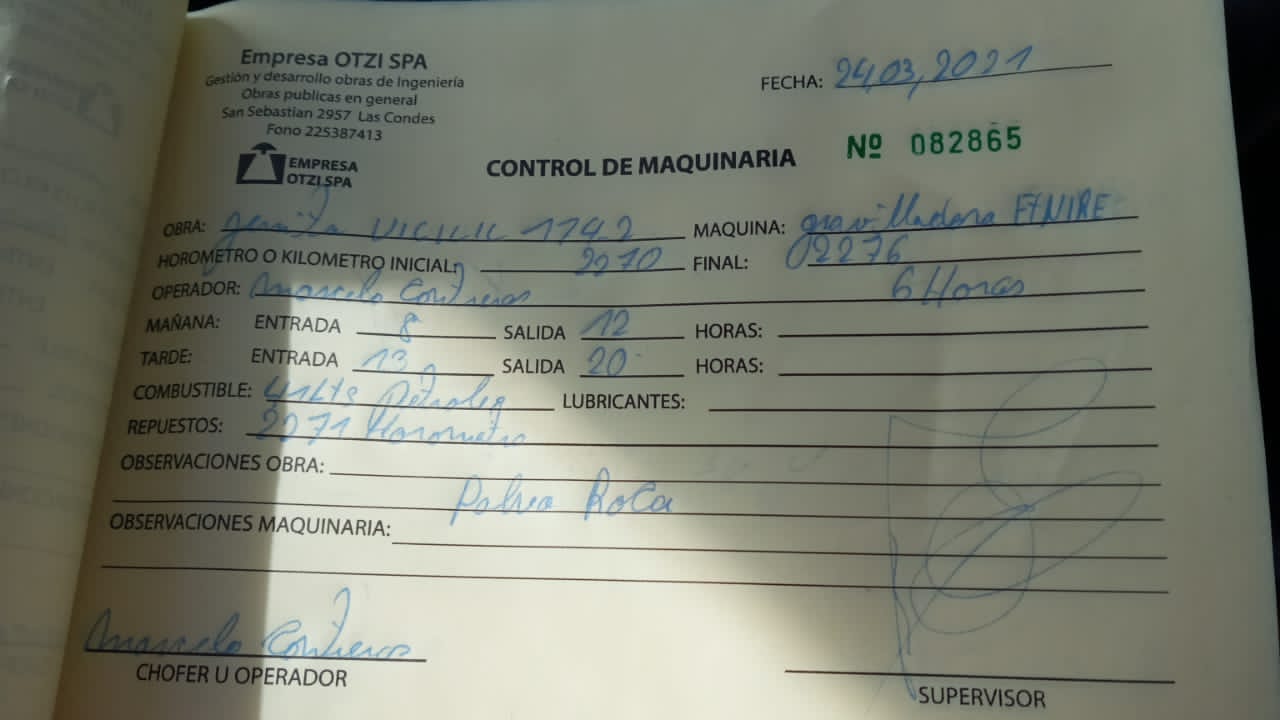 Empresa OTZI SPA
Gestión y desarrollo obras de Ingeniería
Obras publicas en general
San Sebastian 2957 Las Condes
Fono 225387413
EMPRESA
OTZI SPA
FECHA: 24,03,2021
Nº 082865
CONTROL DE MAQUINARIA
OBRA: 1142 MAQUINA: gravilladora
HOROMETRO O KILOMETRO INICIAL: 2270 FINAL: 02276
OPERADOR: Marcelo Contreras 6 Horas
MAÑANA: ENTRADA 8 SALIDA 12 HORAS:
TARDE: ENTRADA 13 SALIDA 20 HORAS:
COMBUSTIBLE: LUBRICANTES:
REPUESTOS: 2271 Horometro
OBSERVACIONES OBRA:
Polvo Roca
OBSERVACIONES MAQUINARIA:
Marcelo Contreras
CHOFER U OPERADOR
SUPERVISOR